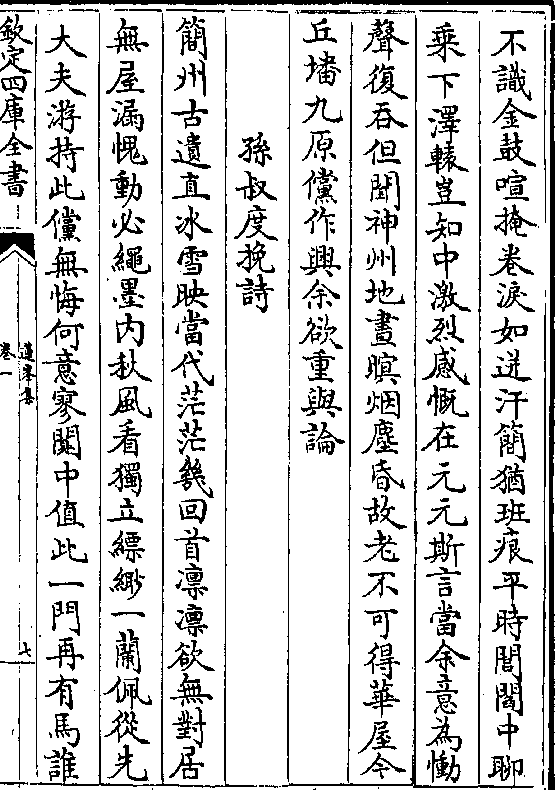 不識金鼓喧掩卷淚如迸汗簡猶班痕平時閭閻中聊
乘下澤轅豈知中激烈感慨在元元斯言當余意為慟
聲復吞但聞神州地晝暝烟塵昏故老不可得華屋今
丘墦九原儻作興余欲重與論
孫叔度挽詩
簡州古遺直冰雪映當代茫茫幾回首凛凛欲無對居
無屋漏愧動必繩墨内秋風看獨立縹緲一蘭佩從先
大夫游持此儻無悔何意寥闃中值此一門再有焉誰
欽定四庫全書
蓮峯集
卷一
七